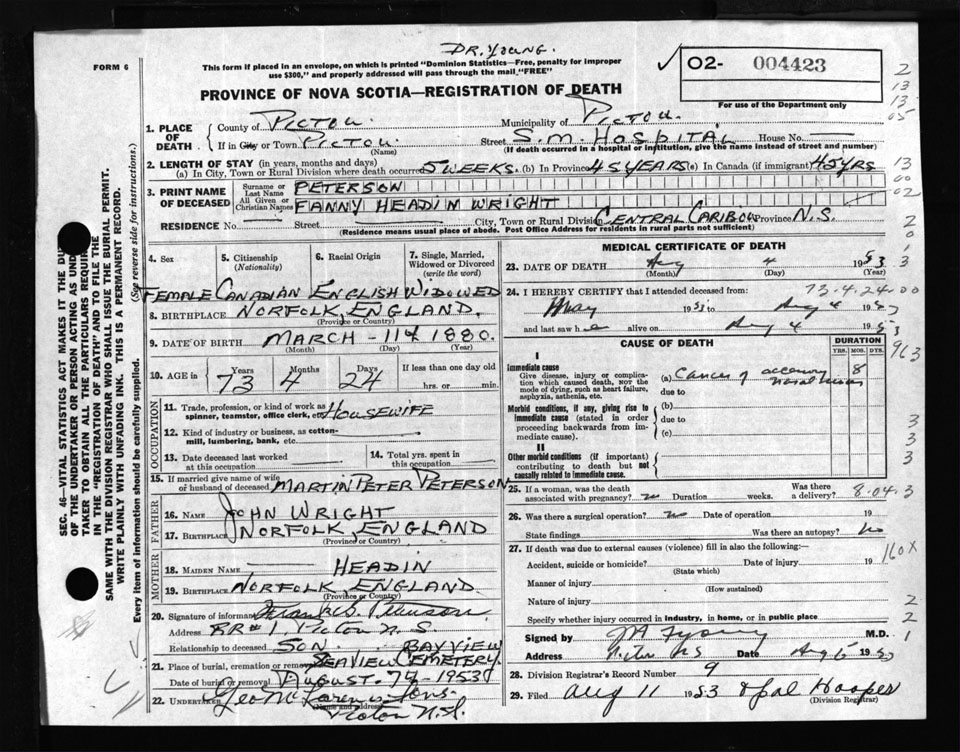 DR. YOUNG.
FORM 6
This form if placed in an envelope, on which is printed "Dominion Statistics—Free, penalty for improper
use $300," and properly addressed will pass through the mail "FREE"
✓ O2- 004423
For use of the Department only
PROVINCE OF NOVA SCOTIA—REGISTRATION OF DEATH
1. PLACE OF DEATH { County of PICTOU. Municipality of PICTOU.
If in City or Town PICTOU. (Name) Street S.M. HOSPITAL House No.
(If death occurred in a hospital or institution, give the name instead of street and number)
2. LENGTH OF STAY (in years, months and days)
(a) In City, Town or Rural Division where death occurred 5 WEEKS. (b) In Province 45 YEARS (c) In Canada (if immigrant) 45 YRS
3. PRINT NAME OF DECEASED { Surname or Last Name PETERSON
All Given or Christian Names FANNY HEADIN WRIGHT
RESIDENCE No. Street City, Town or Rural Division CENTRAL CARIBOU Province N.S.
(Residence means usual place of abode. Post Office Address for residents in rural parts not sufficient)
4. Sex 5. Citizenship (Nationality) 6. Racial Origin 7. Single, Married, Widowed or Divorced (write the word)
FEMALE CANADIAN ENGLISH WIDOWED
8. BIRTHPLACE NORFOLK, ENGLAND.
(Province or Country)
9. DATE OF BIRTH MARCH - 11th 1880.
(Month) (Day) (Year)
10. AGE in 73 Years 4 Months 24 Days If less than one day old
hrs. or min.
OCCUPATION
11. Trade, profession, or kind of work as spinner, teamster, office clerk, etc. HOUSEWIFE
12. Kind of industry or business, as cotton-mill, lumbering, bank, etc.
13. Date deceased last worked at this occupation
14. Total yrs. spent in this occupation
15. If married give name of wife or husband of deceased MARTIN PETER PETERSON
FATHER
16. NAME JOHN WRIGHT
17. BIRTHPLACE NORFOLK, ENGLAND
(Province or Country)
MOTHER
18. MAIDEN NAME HEADIN
19. BIRTHPLACE NORFOLK, ENGLAND
(Province or Country)
20. Signature of informant
Address RR #1 Picton N.S.
Relationship to deceased SON. BAYVIEW
21. Place of burial, cremation or removal SEAVIEW CEMETERY.
Date of burial or removal AUGUST. 7th - 1953
22. UNDERTAKER Geo McLaren & Sons.
(Name and address) Picton N.S.
MEDICAL CERTIFICATE OF DEATH
23. DATE OF DEATH Aug 4 1953
(Month) (Day) (Year)
73.4.24.00
24. I HEREBY CERTIFY that I attended deceased from:
May 19 to Aug 4 1953
and last saw h alive on Aug 4 1953
CAUSE OF DEATH
DURATION
YRS. MOS. DYS.
I
Immediate cause
Give disease, injury or complication which caused death, NOT the mode of dying, such as heart failure, asphyxia, asthenia, etc.
(a) Cancer of accessory nasal sinus 8
due to
Morbid conditions, if any, giving rise to immediate cause (stated in order proceeding backwards from immediate cause).
(b)
due to
(c)
II
Other morbid conditions (if important) contributing to death but not causally related to immediate cause.
25. If a woman, was the death associated with pregnancy? no Duration weeks. Was there a delivery? 8-04-3
26. Was there a surgical operation? no Date of operation 19
State findings Was there an autopsy? No
27. If death was due to external causes (violence) fill in also the following:—
160X
Accident, suicide or homicide? Date of injury 19
(State which)
Manner of injury
(How sustained)
Nature of injury
Specify whether injury occurred in industry, in home, or in public place
Signed by M.D.
Address Date Aug 6 1953
28. Division Registrar's Record Number 9
29. Filed Aug 11 1953 Opal Hooper
(Division Registrar)
SEC. 46—VITAL STATISTICS ACT MAKES IT THE DU
OF THE UNDERTAKER OR PERSON ACTING AS UND
TAKER TO OBTAIN ALL THE PARTICULARS REQUIR
IN THE "REGISTRATION OF DEATH" AND TO FILE THE
SAME WITH THE DIVISION REGISTRAR WHO SHALL ISSUE THE BURIAL PERMIT.
WRITE PLAINLY WITH UNFADING INK. THIS IS A PERMANENT RECORD.
Every item of information should be carefully supplied. (See reverse side for instructions.)
2
13
13
05
13
00
02
2
0
1
3
963
3
3
3
2
2
1